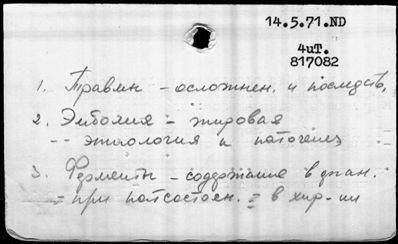 14.5.71.ND
4иТ.
817082
1. Травм - осложнен. и последств.
2. Эмболия - жировая
-- этиология и патогенез
3. Ферменты - содержание в
= при пат. состоян. = в хир-ии